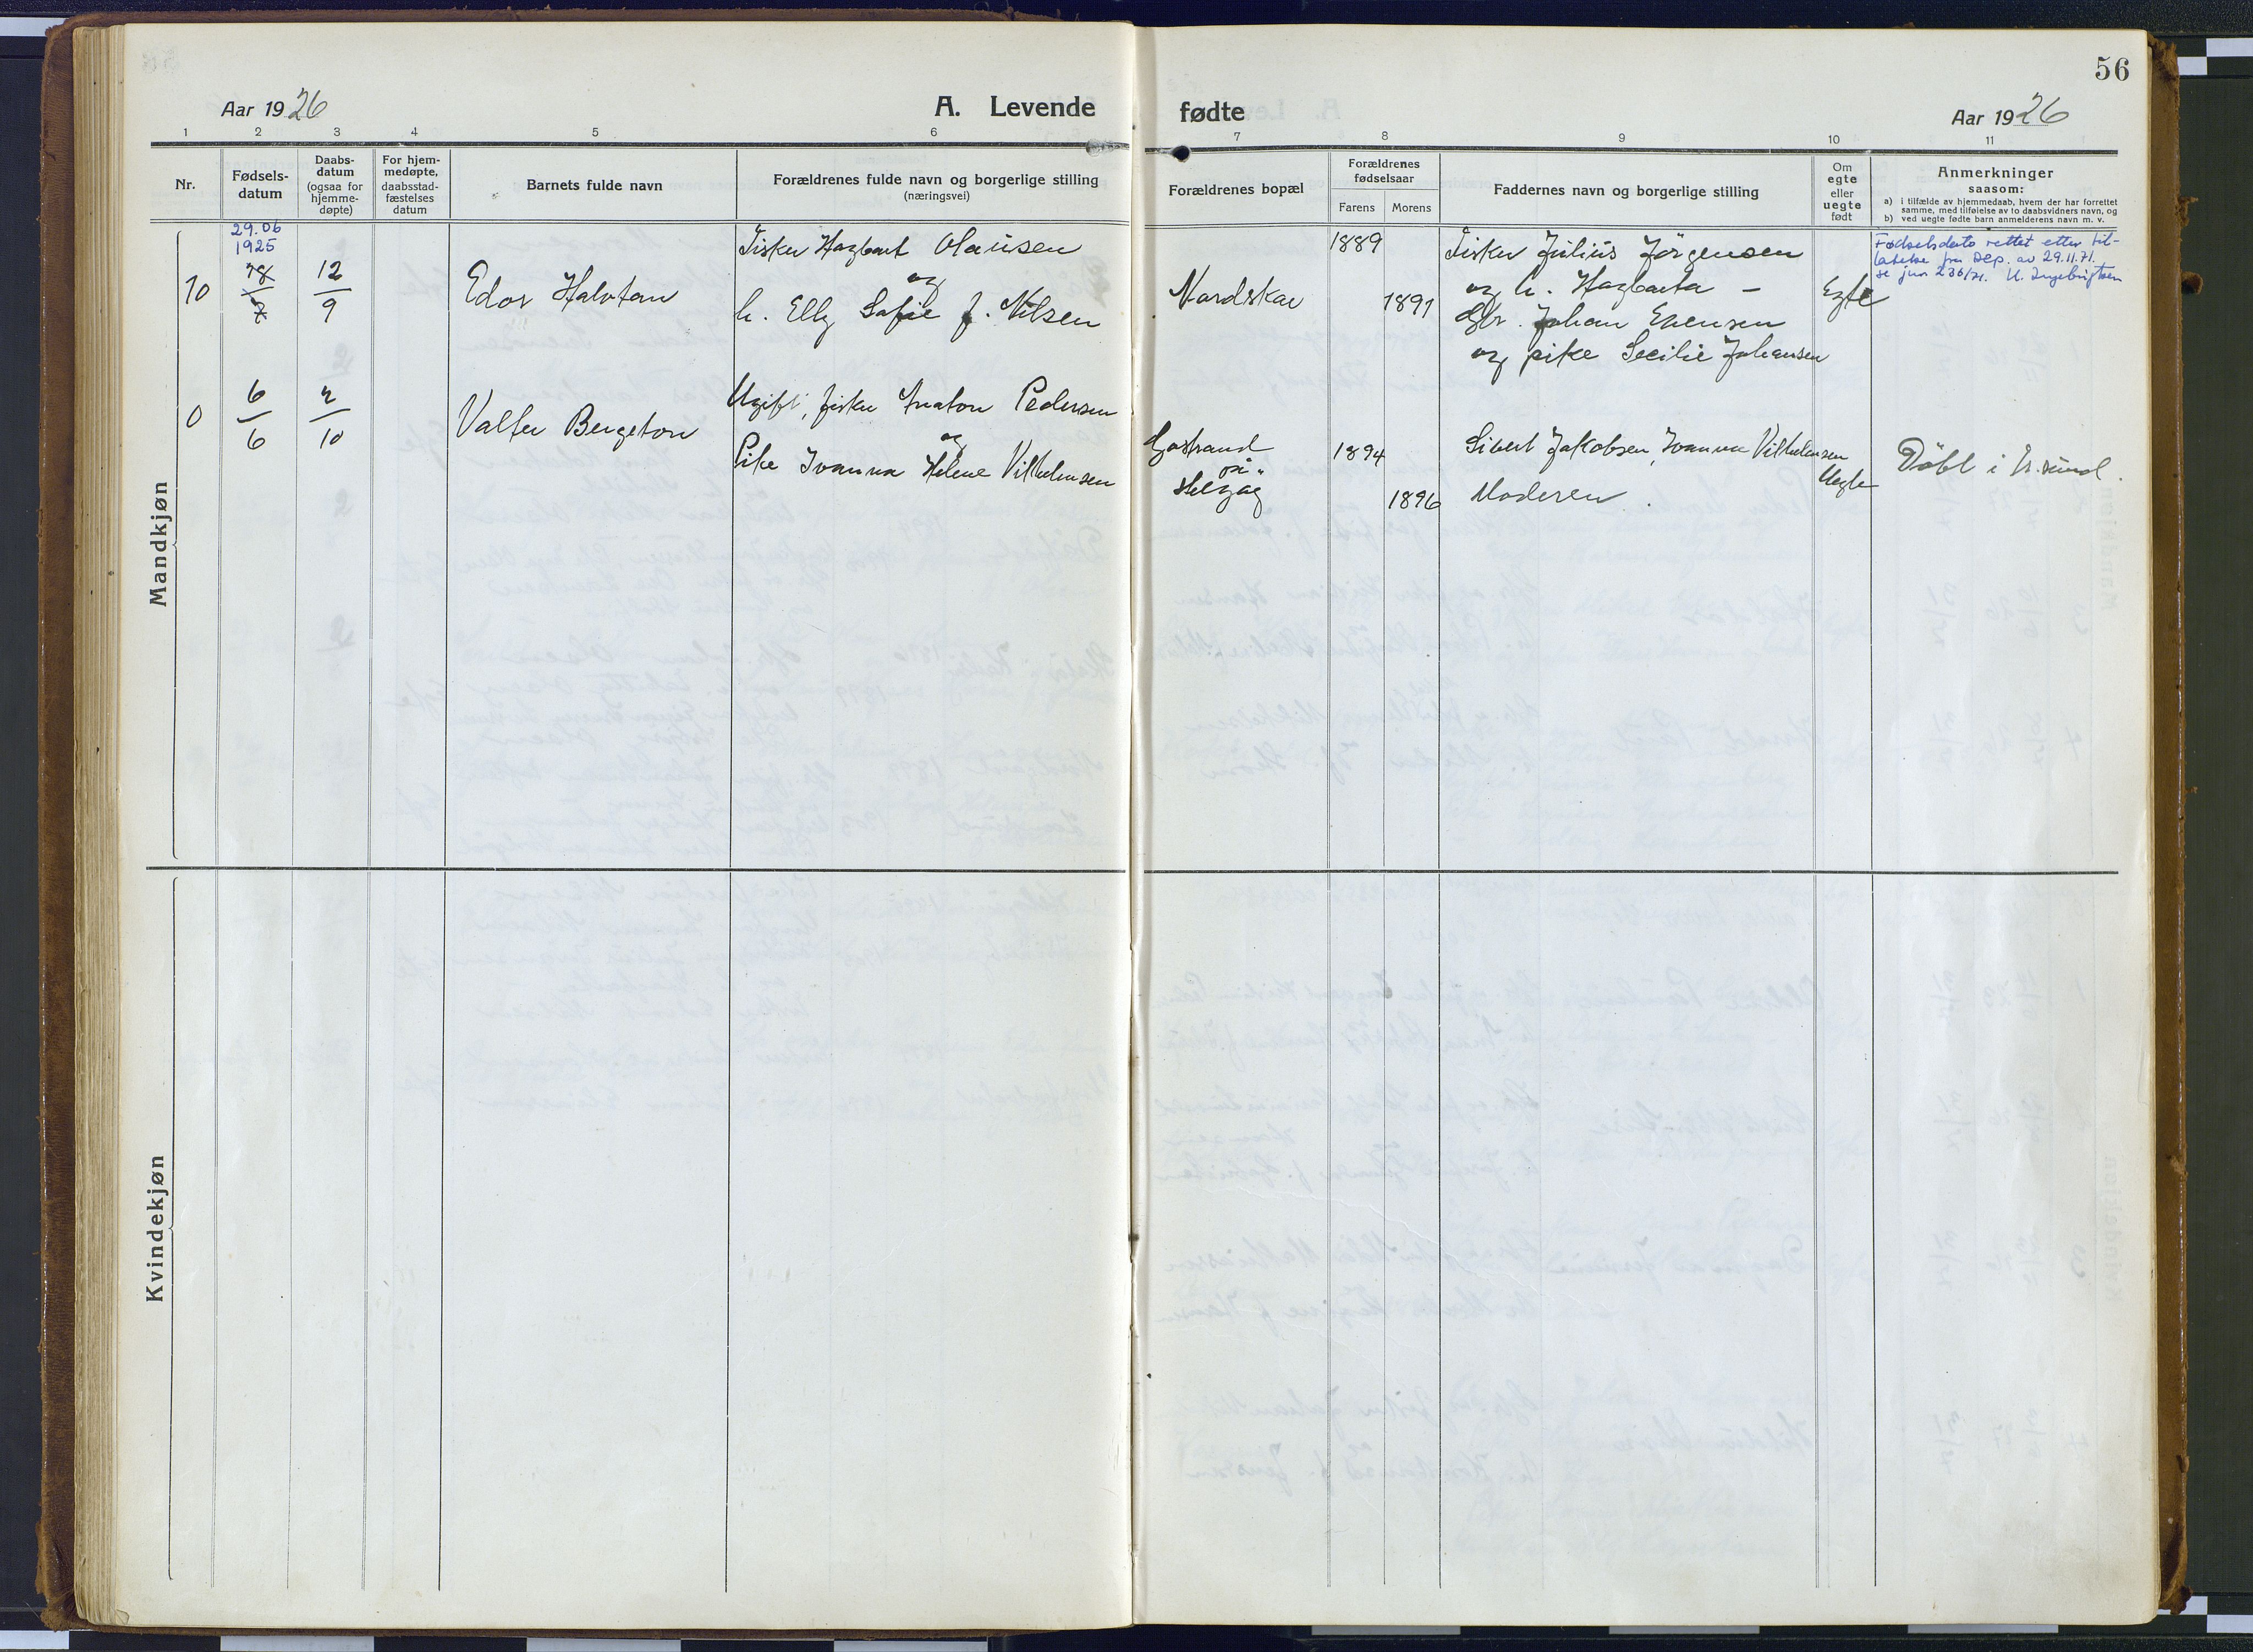 56
Aar 1926
A. Levende
fødte
Aar 1926
1 2 3 4 5 6 7 8 9 10 11
Nr.
Fødsels-
datum
Daabs-
datum
(ogsaa for
hjemme-
døpte)
For hjem-
medøpte,
daabsstad-
fæstelses
datum
Barnets fulde navn
Forældrenes fulde navn og borgerlige stilling
(næringsvei)
Forældrenes bopæl
Forældrenes
fødselsaar
Farens Morens
Faddernes navn og borgerlige stilling
Om
egte
eller
uegte
født
Anmerkninger
saasom:
a) i tilfælde av hjemmedaab, hvem der har forrettet
samme, med tilføielse av to daabsvidners navn, og
b) ved uegte fødte barn anmelderens navn m. v.
Mandkjøn
29.06
1925
10
18/7
12/9
Edor Halvtan
Fisker Hagbart Olausen
og
h. Elly Sofie f. Nilsen
Nordskar
1889
1891
Fisker Julius Jørgensen
og h. Hagbarta –
Gbr. Johan Evensen
og pike Secilie Johansen
Egte
Fødselsdato rettet etter til-
latelse fra Dep. av 29.11.71.
se jnr 236/71. U. Ingebrigtsen
0
6/6
2/10
Valter Bergeton
Ugift, fisker Anaton Pedersen
og
Pike Ivanna Helene Vilhelmsen
på
Helgøy
1894
1896
Sivert Jakobsen, Ivanna Vilhelmsen
Moderen.
Uegte
Döbt i H.sund.
Kvindekjøn